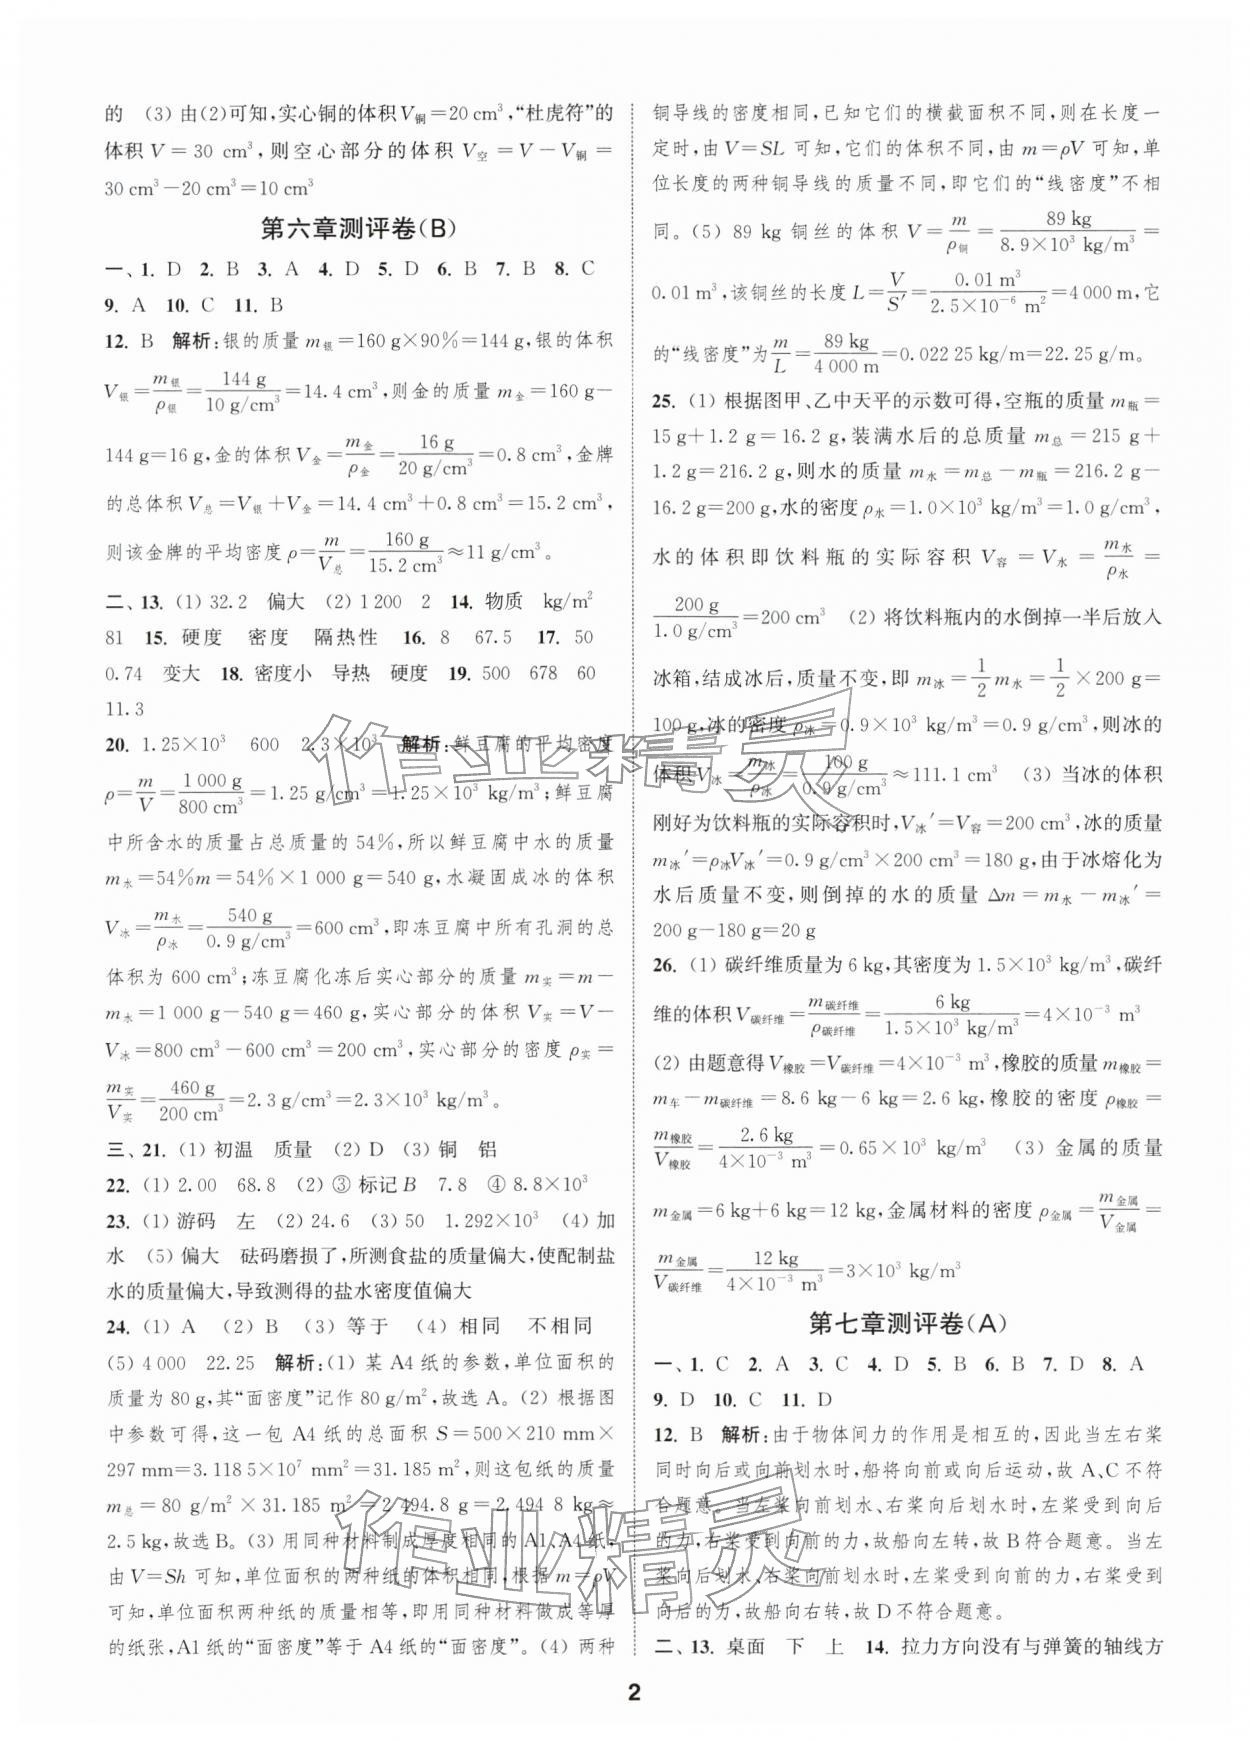 的 (3)由(2)可知,实心铜的体积V铜=20 cm³,“杜虎符”的
体积V=30 cm³,则空心部分的体积 V空=V-V铜=
30 cm³-20 cm³=10 cm³
第六章测评卷(B)
一、1. D 2. B 3. A 4. D 5. D 6. B 7. B 8. C
9. A 10. C 11. B
12. B 解析:银的质量m银=160 g×90%=144 g,银的体积
V银=m银/ρ银=144 g/10 g/cm³=14.4 cm³,则金的质量m金=160 g-
144 g=16 g,金的体积V金=m金/ρ金=16 g/20 g/cm³=0.8 cm³,金牌
的总体积V总=V银+V金=14.4 cm³+0.8 cm³=15.2 cm³,
则该金牌的平均密度ρ=m/V总=160 g/15.2 cm³≈11 g/cm³。
二、13. (1)32.2 偏大 (2)1 200 2 14. 物质 kg/m²
81 15. 硬度 密度 隔热性 16. 8 67.5 17. 50
0.74 变大 18. 密度小 导热 硬度 19. 500 678 60
11.3
20. 1.25×10³ 600 2.3×10³ 解析:鲜豆腐的平均密度
ρ=m/V=1 000 g/800 cm³=1.25 g/cm³=1.25×10³ kg/m³;鲜豆腐
中所含水的质量占总质量的54%,所以鲜豆腐中水的质量
m水=54%m=54%×1 000 g=540 g,水凝固成冰的体积
V冰=m水/ρ冰=540 g/0.9 g/cm³=600 cm³,即冻豆腐中所有孔洞的总
体积为600 cm³;冻豆腐化冻后实心部分的质量m实=m-
m水=1 000 g-540 g=460 g,实心部分的体积V实=V-
V冰=800 cm³-600 cm³=200 cm³,实心部分的密度ρ实=
m实/V实=460 g/200 cm³=2.3 g/cm³=2.3×10³ kg/m³。
三、21. (1)初温 质量 (2)D (3)铜 铝
22. (1)2.00 68.8 (2)③标记B 7.8 ④8.8×10³
23. (1)游码 左 (2)24.6 (3)50 1.292×10³ (4)加
水 (5)偏大 砝码磨损了,所测食盐的质量偏大,使配制盐
水的质量偏大,导致测得的盐水密度值偏大
24. (1)A (2)B (3)等于 (4)相同 不相同
(5)4 000 22.25 解析:(1)某A4纸的参数,单位面积的
质量为80 g,其“面密度”记作80 g/m²,故选A。(2)根据图
中参数可得,这一包A4纸的总面积S=500×210 mm×
297 mm=3.118 5×10⁷ mm²=31.185 m²,则这包纸的质量
m总=80 g/m²×31.185 m²=2 494.8 g=2.494 8 kg≈
2.5 kg,故选B。(3)用同种材料制成厚度相同的A1、A4纸,
由V=Sh可知,单位面积的两种纸的体积相同,根据m=ρV
可知,单位面积两种纸的质量相等,即用同种材料做成等厚
的纸张,A1纸的“面密度”等于A4纸的“面密度”。(4)两种
铜导线的密度相同,已知它们的横截面积不同,则在长度一
定时,由V=SL可知,它们的体积不同,由m=ρV可知,单
位长度的两种铜导线的质量不同,即它们的“线密度”不相
同。(5)89 kg铜丝的体积V=m/ρ铜=89 kg/8.9×10³ kg/m³=
0.01 m³,该铜丝的长度L=V/S′=0.01 m³/2.5×10⁻⁶ m²=4 000 m,它
的“线密度”为m/L=89 kg/4 000 m=0.022 25 kg/m=22.25 g/m。
25. (1)根据图甲、乙中天平的示数可得,空瓶的质量m瓶=
15 g+1.2 g=16.2 g,装满水后的总质量m总=215 g+
1.2 g=216.2 g,则水的质量m水=m总-m瓶=216.2 g-
16.2 g=200 g,水的密度ρ水=1.0×10³ kg/m³=1.0 g/cm³,
水的体积即饮料瓶的实际容积V容=V水=m水/ρ水=
200 g/1.0 g/cm³=200 cm³ (2)将饮料瓶内的水倒掉一半后放入
冰箱,结成冰后,质量不变,即m冰=1/2m水=1/2×200 g=
100 g,冰的密度ρ冰=0.9×10³ kg/m³=0.9 g/cm³,则冰的
体积V冰=m冰/ρ冰=100 g/0.9 g/cm³≈111.1 cm³ (3)当冰的体积
刚好为饮料瓶的实际容积时,V冰′=V容=200 cm³,冰的质量
m冰′=ρ冰V冰′=0.9 g/cm³×200 cm³=180 g,由于冰熔化为
水后质量不变,则倒掉的水的质量Δm=m水-m冰′=
200 g-180 g=20 g
26. (1)碳纤维质量为6 kg,其密度为1.5×10³ kg/m³,碳纤
维的体积V碳纤维=m碳纤维/ρ碳纤维=6 kg/1.5×10³ kg/m³=4×10⁻³ m³
(2)由题意得V橡胶=V碳纤维=4×10⁻³ m³,橡胶的质量m橡胶=
m车-m碳纤维=8.6 kg-6 kg=2.6 kg,橡胶的密度ρ橡胶=
m橡胶/V橡胶=2.6 kg/4×10⁻³ m³=0.65×10³ kg/m³ (3)金属的质量
m金属=6 kg+6 kg=12 kg,金属材料的密度ρ金属=m金属/V金属=
m金属/V碳纤维=12 kg/4×10⁻³ m³=3×10³ kg/m³
第七章测评卷(A)
一、1. C 2. A 3. C 4. D 5. B 6. B 7. D 8. A
9. D 10. C 11. D
12. B 解析:由于物体间力的作用是相互的,因此当左右桨
同时向后或向前划水时,船将向前或向后运动,故A、C不符
合题意。当左桨向前划水、右桨向后划水时,左桨受到向后
的力,右桨受到向前的力,故船向左转,故B符合题意。当左
桨向后划水、右桨向前划水时,左桨受到向前的力,右桨受到
向后的力,故船向右转,故D不符合题意。
二、13. 桌面 下 上 14. 拉力方向没有与弹簧的轴线方
作业精灵
作业精灵
2